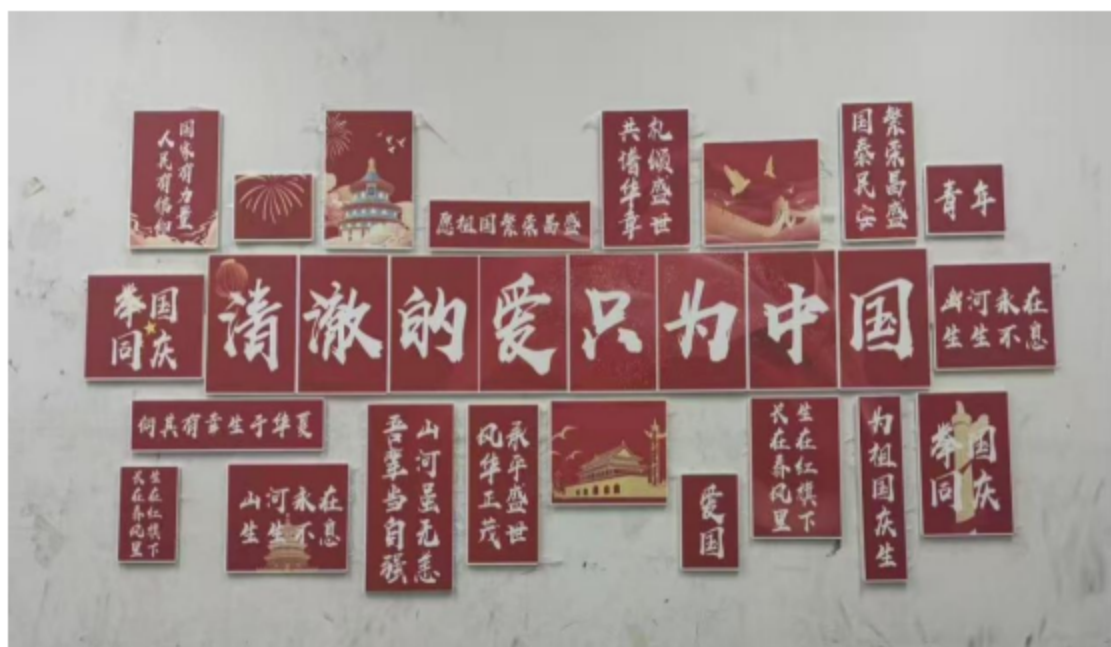 国家有力量
人民有信仰
愿祖国繁荣昌盛
礼颂盛世
共谱华章
繁荣昌盛
国泰民安
青年
举国
同庆
清澈的爱只为中国
山河永在
生生不息
何其有幸生于华夏
生在红旗下
长在春风里
山河永在
生生不息
山河虽无恙
吾辈当自强
承平盛世
风华正茂
爱国
生在红旗下
长在春风里
为祖国庆生
举国
同庆